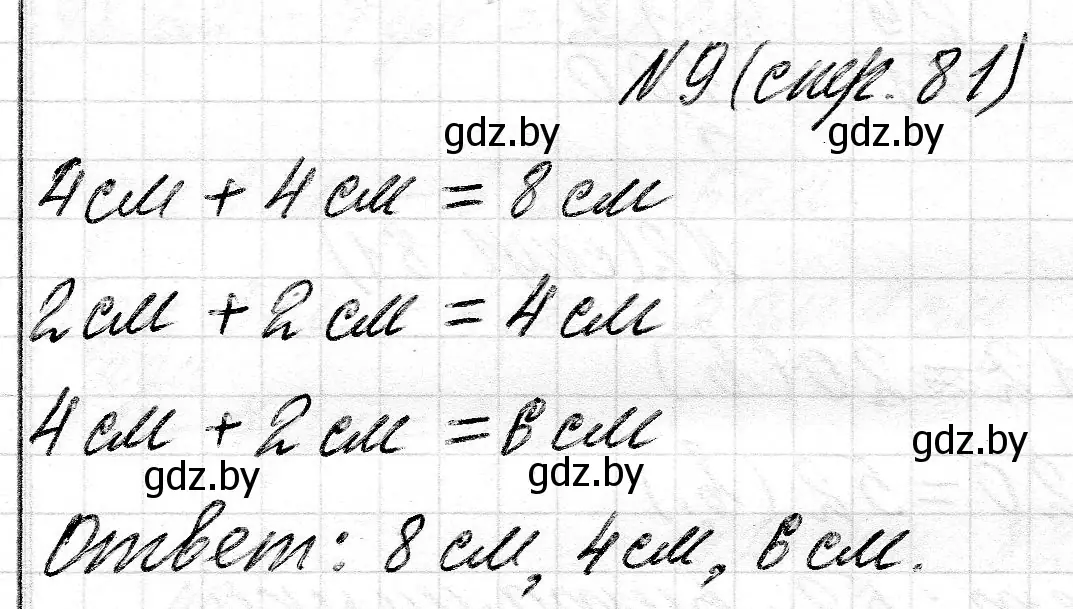 №9 (стр. 81)
gdz.by gdz.by
4 см + 4 см = 8 см
2 см + 2 см = 4 см
4 см + 2 см = 6 см
gdz.by gdz.by gdz.by
Ответ: 8 см, 4 см, 6 см.